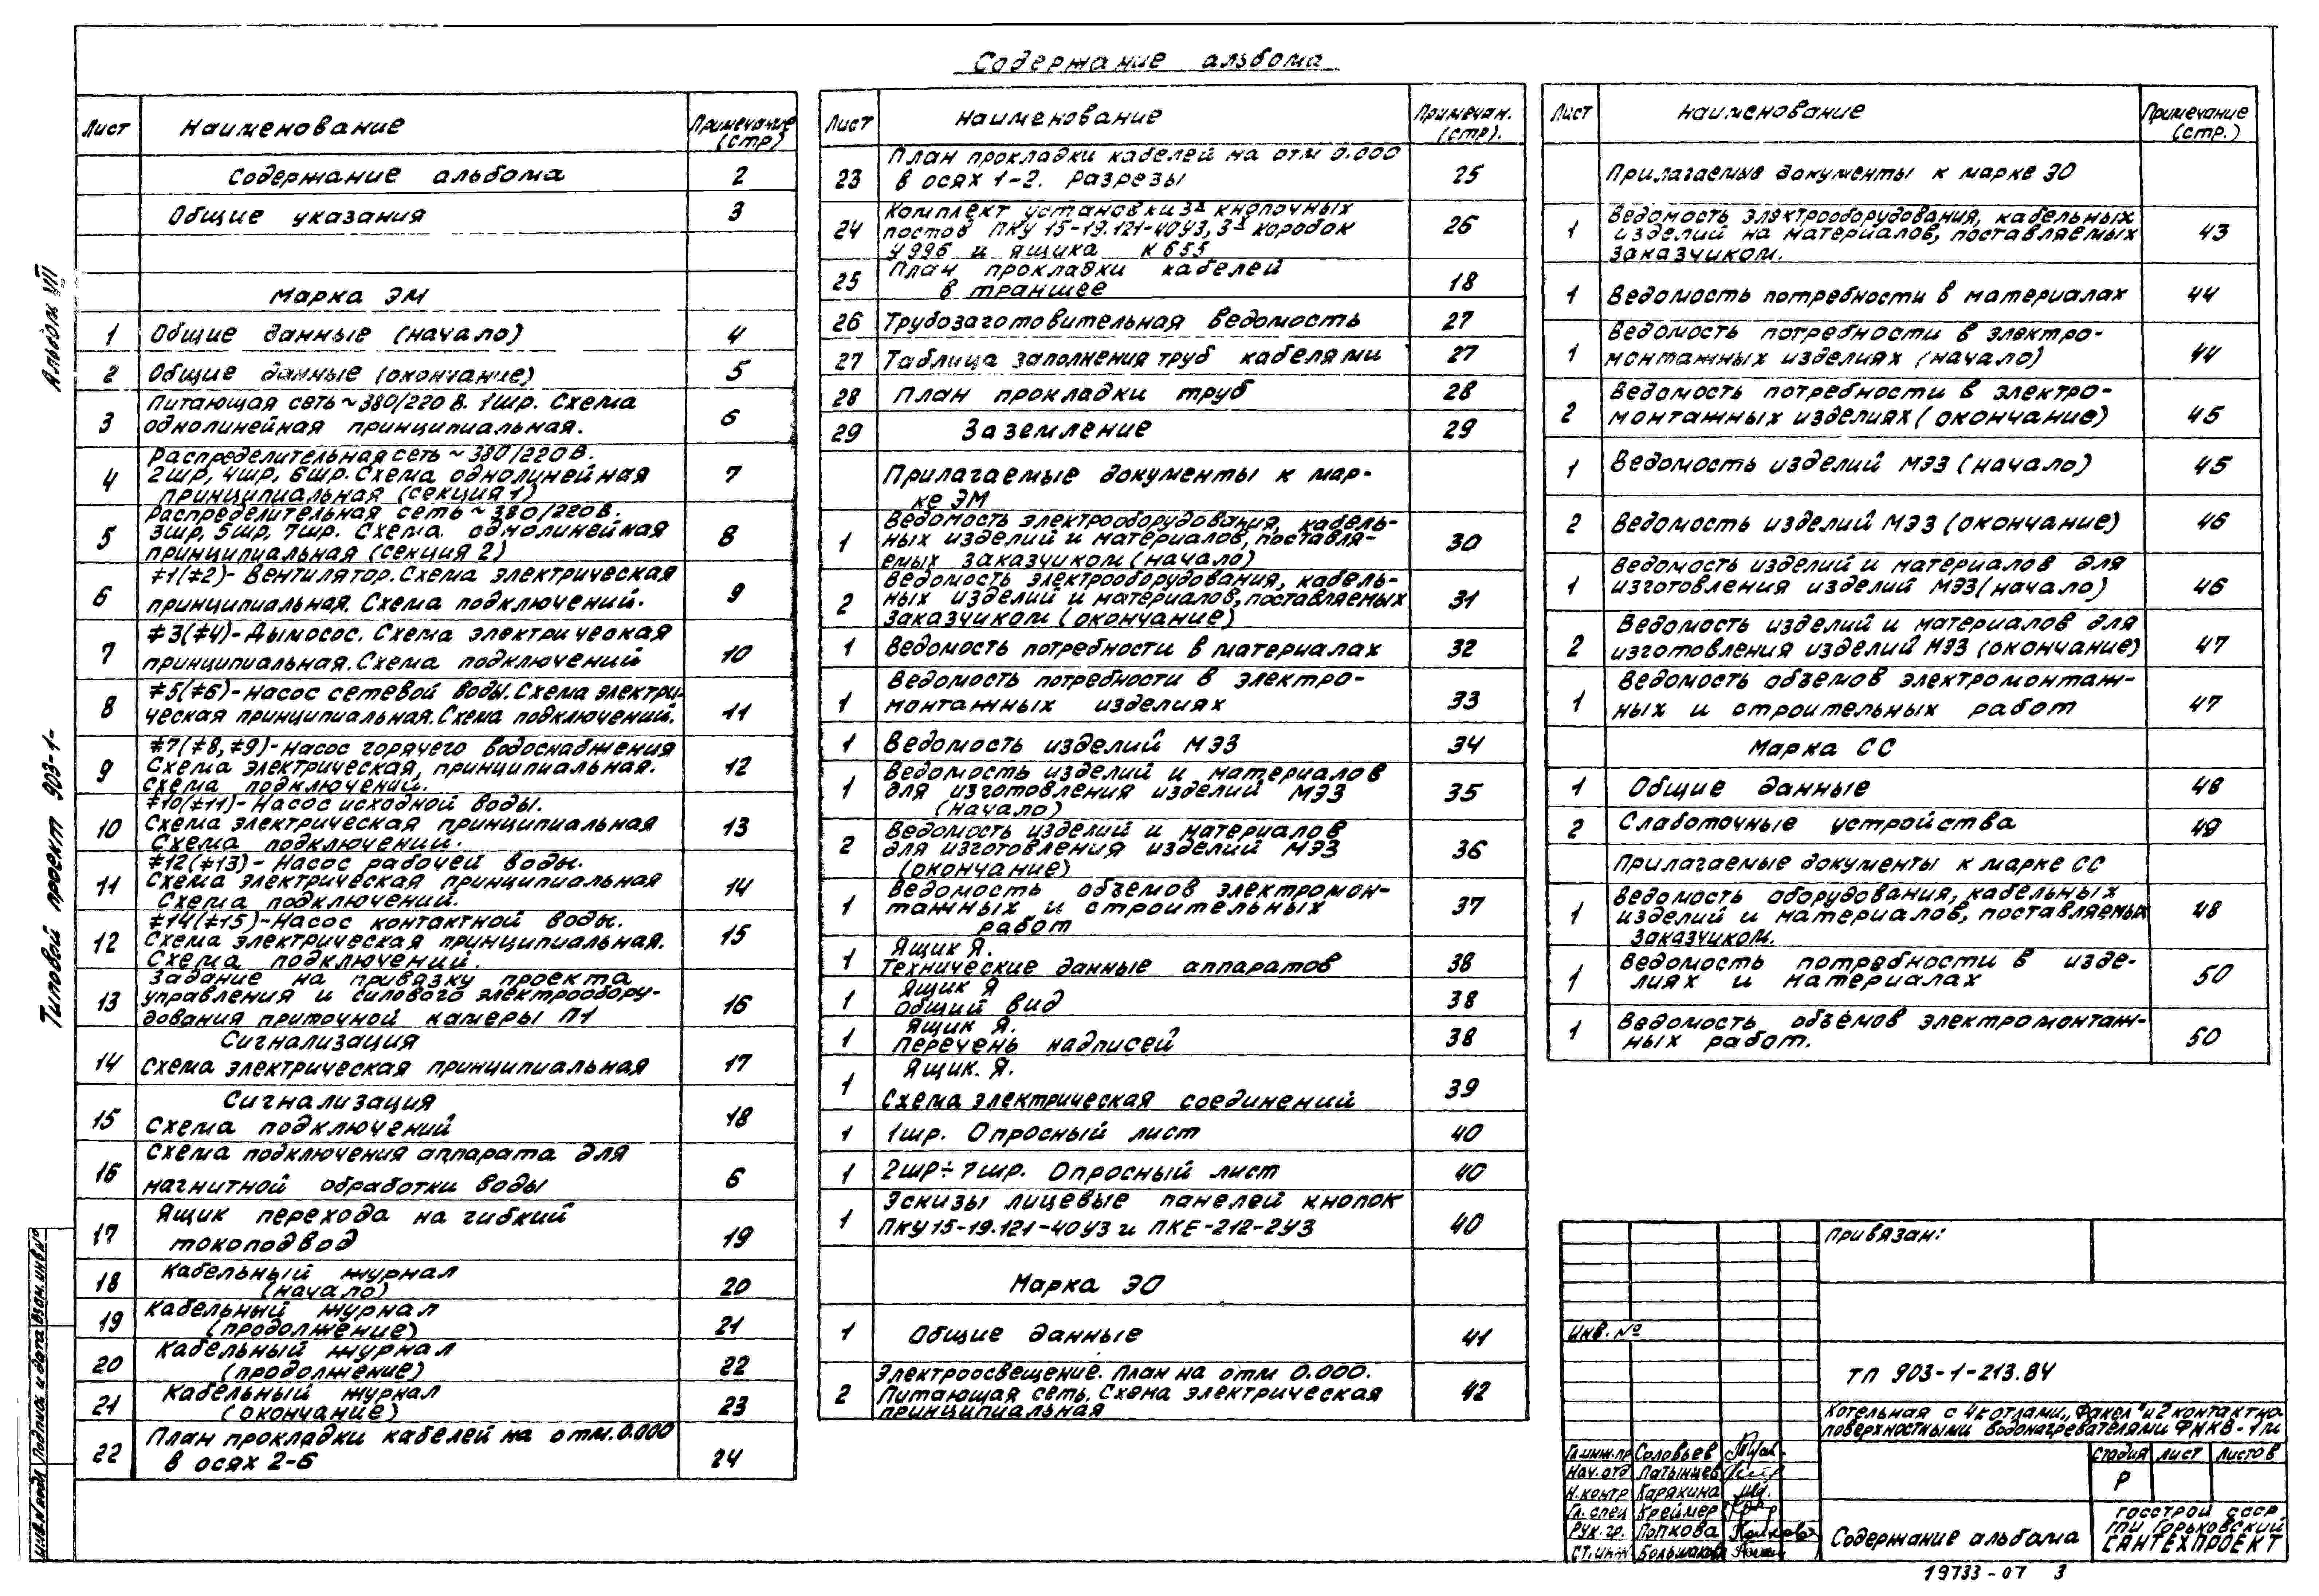 Содержание альбома
Лист Наименование Примечание (стр)
Содержание альбома 2
Общие указания 3
Марка ЭМ
1 Общие данные (начало) 4
2 Общие данные (окончание) 5
Питающая сеть ~380/220 В. 1шр. Схема
3 однолинейная принципиальная. 6
Распределительная сеть ~ 380/220 В.
4 2шр, 4шр, 6шр. Схема однолинейная 7
принципиальная (секция 1)
Распределительная сеть ~ 380/220 В.
5 3шр, 5шр, 7шр. Схема однолинейная 8
принципиальная (секция 2)
≠1(≠2)- Вентилятор. Схема электрическая
6 принципиальная. Схема подключений. 9
≠3(≠4)- Дымосос. Схема электрическая
7 принципиальная. Схема подключений 10
≠5(≠6)- Насос сетевой воды. Схема электри-
8 ческая принципиальная. Схема подключений. 11
≠7(≠8, ≠9)- Насос горячего водоснабжения
9 Схема электрическая, принципиальная. 12
Схема подключений.
≠10(≠11)- Насос исходной воды.
10 Схема электрическая принципиальная 13
Схема подключений.
≠12(≠13)- Насос рабочей воды.
11 Схема электрическая принципиальная 14
Схема подключений.
≠14(≠15)- Насос контактной воды.
12 Схема электрическая принципиальная. 15
Схема подключений.
Задание на привязку проекта
13 управления и силового электрообору- 16
дования приточной камеры П1
Сигнализация
14 Схема электрическая принципиальная 17
Сигнализация
15 Схема подключений 18
Схема подключения аппарата для
16 магнитной обработки воды 6
Ящик перехода на гибкий
17 токоподвод 19
Кабельный журнал
18 (начало) 20
Кабельный журнал
19 (продолжение) 21
Кабельный журнал
20 (продолжение) 22
Кабельный журнал
21 (окончание) 23
План прокладки кабелей на отм. 0.000
22 в осях 2-6 24
Лист Наименование Примечан. (стр).
План прокладки кабелей на отм 0.000
23 в осях 1-2. Разрезы 25
Комплект установки 3х кнопочных
24 постов ПКУ 15-19.121-40У3, 3х коробок 26
У996 и ящика К 655
План прокладки кабелей
25 в траншее 18
26 Трубозаготовительная ведомость 27
27 Таблица заполнения труб кабелями 27
28 План прокладки труб 28
29 Заземление 29
Прилагаемые документы к мар-
ке ЭМ
Ведомость электрооборудования, кабель-
1 ных изделий и материалов, поставля- 30
емых заказчиком (начало)
Ведомость электрооборудования, кабель-
2 ных изделий и материалов, поставляемых 31
заказчиком (окончание)
1 Ведомость потребности в материалах 32
Ведомость потребности в электро-
1 монтажных изделиях 33
1 Ведомость изделий МЭЗ 34
Ведомость изделий и материалов
1 для изготовления изделий МЭЗ 35
(начало)
Ведомость изделий и материалов
2 для изготовления изделий МЭЗ 36
(окончание)
Ведомость объемов электромон-
1 тажных и строительных 37
работ
Ящик Я.
1 Технические данные аппаратов 38
Ящик Я
1 Общий вид 38
Ящик Я.
1 Перечень надписей 38
Ящик. Я.
1 Схема электрическая соединений 39
1 1шр. Опросный лист 40
1 2шр÷7шр. Опросный лист 40
Эскизы лицевые панелей кнопок
1 ПКУ15-19.121-40У3 и ПКЕ-212-2У3 40
Марка ЭО
1 Общие данные 41
Электроосвещение. План на отм 0.000.
2 Питающая сеть. Схема электрическая 42
принципиальная
Лист Наименование Примечание (стр.)
Прилагаемые документы к марке ЭО
Ведомость электрооборудования, кабельных
1 изделий на материалов, поставляемых 43
заказчиком.
1 Ведомость потребности в материалах 44
Ведомость потребности в электро-
1 монтажных изделиях (начало) 44
Ведомость потребности в электро-
2 монтажных изделиях (окончание) 45
1 Ведомость изделий МЭЗ (начало) 45
2 Ведомость изделий МЭЗ (окончание) 46
Ведомость изделий и материалов для
1 изготовления изделий МЭЗ (начало) 46
Ведомость изделий и материалов для
2 изготовления изделий МЭЗ (окончание) 47
Ведомость объемов электромонтаж-
1 ных и строительных работ 47
Марка СС
1 Общие данные 48
2 Слаботочные устройства 49
Прилагаемые документы к марке СС
Ведомость оборудования, кабельных
1 изделий и материалов, поставляемых 48
заказчиком.
Ведомость потребности в изде-
1 лиях и материалах 50
Ведомость объемов электромонтаж-
1 ных работ. 50
Альбом VII
Типовой проект 903-1-
Инв.№ подл. Подпись и дата Взам. инв.№
Привязан:
Инв. №
ТП 903-1-213.84
Котельная с 4 котлами „Факел" и 2 контактно-
поверхностными водонагревателями ФНКВ-1м
Гл.инж.пр Соловьев
Нач. отд Латынцев
Н.контр Карякина
Гл. спец Креймер
Рук. гр. Попкова
Ст. инж Большаков
Стадия Лист Листов
Р
Содержание альбома
ГОССТРОЙ СССР
ГПИ Горьковский
САНТЕХПРОЕКТ
19733-07 3